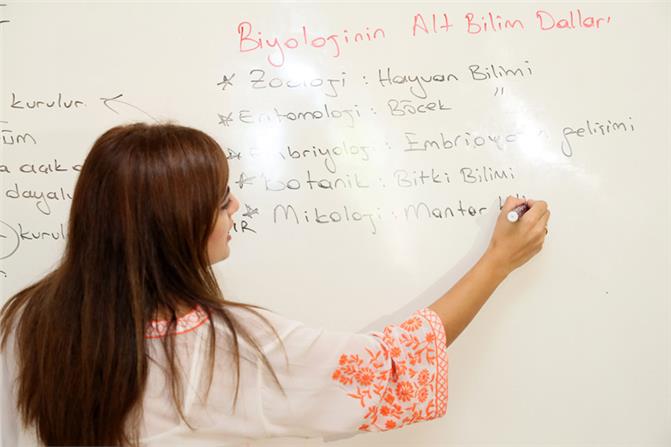 Biyolojinin Alt Bilim Dalları
* Zooloji : Hayvan Bilimi
* Entomoloji : Böcek "
* Embriyoloji : Embriyo gelişimi
* Botanik : Bitki Bilimi
* Mikoloji : Mantar
kurulur.
açık
dayalı
kurulu